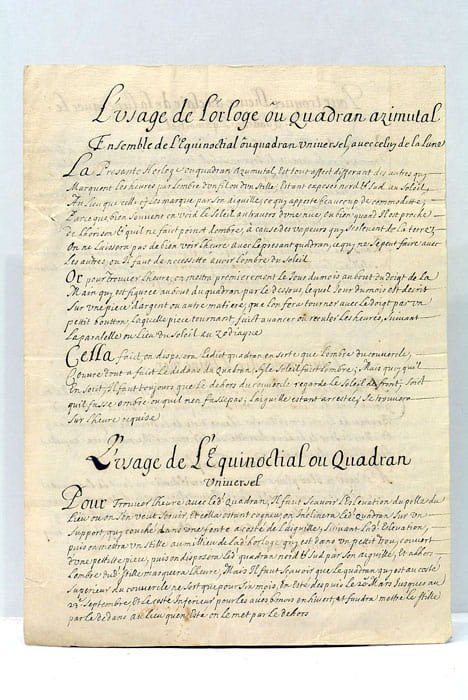 L'usage de l'orloge ou Quadran azimutal
Ensemble de l'Equinoctial ou quadran Vniversel, avec celuy de la Lune
La Presante Horloge ou quadran azumutal, Est tout affect differant des autres qui
Marquent les heures par l'ombre d'un fil ou d'un stille, Estant exposés nord & sud au Soleil
Au lieu que celle cy les marque par son aiguille, ce qui apporte beaucoup de commoditté;
Parce que bien souvent on void le Soleil au travers d'une nue, ou bien quand Il est proche
de l'horison & qu'il ne faict point d'ombre, à cause des vapeurs qui s'eslevent de la terre;
On ne Laissera pas de bien voir l'heure avec le presant quadran, ce qui ne se peut faire avec
les autres, ou Il faut de necessitté avoir l'ombre du Soleil
Or pour trouver l'heure, on mettra premierement le Jour du mois au bout du doigt de la
Main qui est figurée au bout du quadran par le dessous, lequel Jour du mois est descrit
sur une piece d'argent ou autre matiere, que l'on fera tourner avec le doigt par un
pettit boutton, Laquelle piece tournant, faict avancer ou recules les heures, suivant
La paralelle ou Lieu du Soleil au Zodiaque
Cella faict, on disposera ledict quadran en sorte que l'ombre du couvercle,
Couvre tout a faict le dedans du Quadran sy le Soleil faict l'ombre; Mais quoy qu'il
En soit, Il faut toujours que le dehors du couvercle regarde le Soleil de front; soit
qu'il fasse ombre ou qu'il n'en fasse pas; L'aiguille estant arrestée, se trouvera
sur l'heure requise
L'usage de L'Equinoctial ou Quadran
Vniversel
Pour Trouver l'heure avec led. Quadran, Il faut scavoir l'Eslevation du polle du
Lieu ou on s'en veut servir, Et cella estant cogneu, on Inclinera led Quadran sur un
support, qui est couché dans une fente a costé de l'aiguille, suivant lad. Elevation,
puis on mettra un stille au milieu de lad. horloge qui est dans un pettit trou, couvert
d'une pettitte piece, puis on disposera led quadran nord & sud par son aiguille, Et alhors
L'ombre dud. stille marquera l'heure, Mais Il faut scavoir que le quadran qui est au costé
superieur du couvercle ne sert que pour six mois, En esté despuis le 20 Mars Jusques au
22e Septembre, Et le costé Inferieur pour les aues 6 mois en hivert, et faudra mettre le stille
par le dedans, au lieu qu'en Esté on le met par le dehors